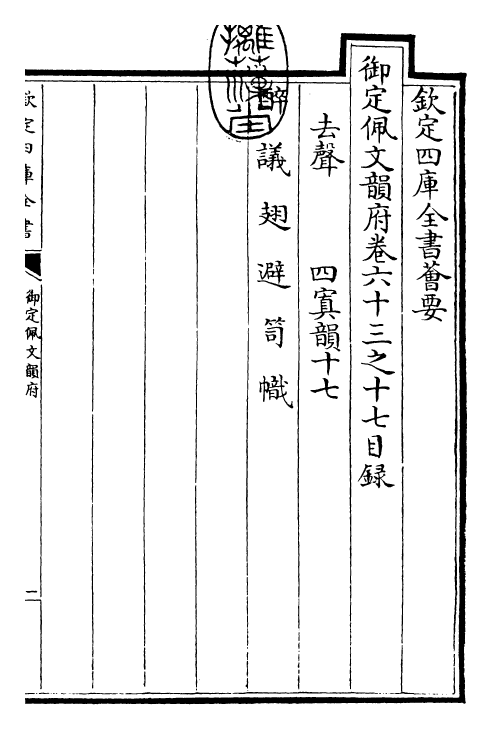 欽定四庫全書薈要
御定佩文韻府卷六十三之十七目録
去聲 四寘韻十七
醉 議 翅 避 笥 幟
欽定四庫全書
御定佩文韻府